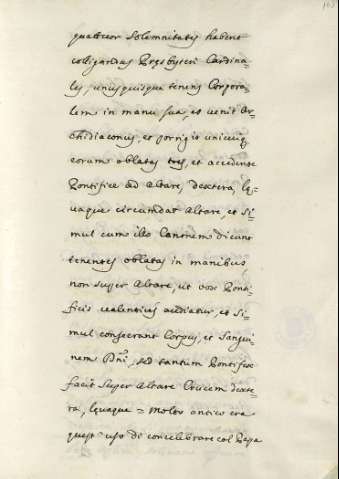 quattuor solemnitates habent
colligendas Presbyteri Cardina-
les, unusquisque tenens Corpora-
lem in manu sua, et venit Ar-
chidiaconus, et porrigit unicuiq;
eorum oblatas tres, et accedente
Pontifice ad Altare, dextera, lę-
vaque circumdat Altare, et Si-
mul cum illo Canonem dicunt
tenentes oblatas in manibus,
non super Altare, ut vox Ponti-
ficis valentius audiatur, et Si-
mul consecrant Corpus, et Sangui-
nem Dñi, sed tantum Pontifex
facit super Altare Crucem dexte-
ra, lęvaque = Molto antico era
quest' uso di concelebrare col Papa